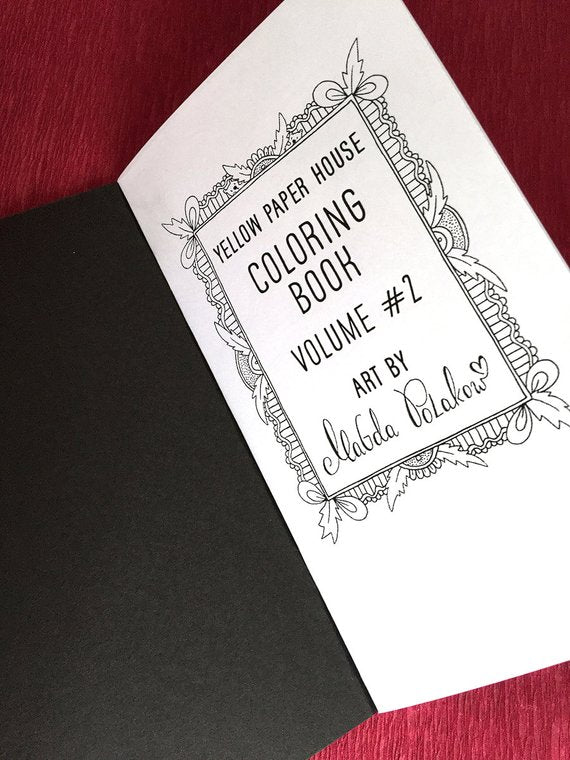 YELLOW PAPER HOUSE
COLORING
BOOK
VOLUME #2
ART BY
Magda Polakow